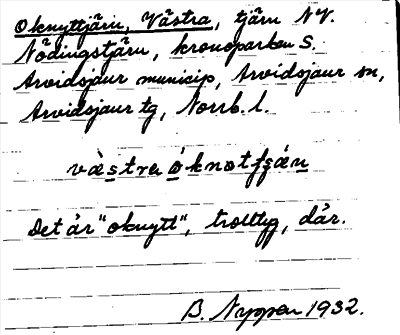 Oknyttjärn, Västra, tjärn NV.
Nödingstjärn, kronoparken S.
Arvidsjaur municip, Arvidsjaur sn,
Arvidsjaur tg, Norrb. l.
Det är "oknytt", trolltyg, där.
B. Nyppen 1932.